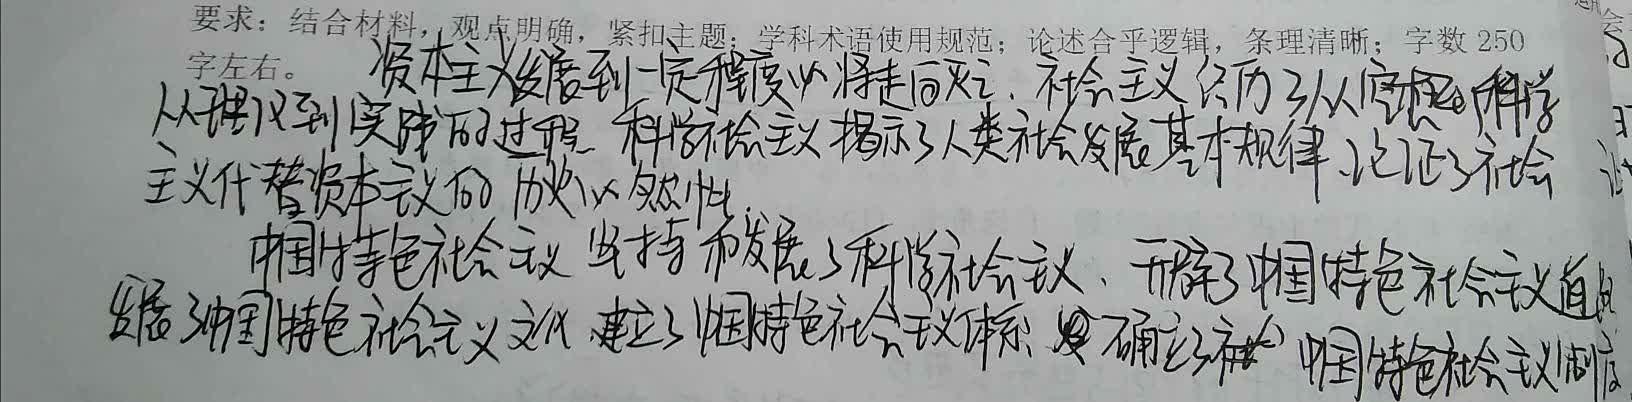 要求：结合材料，观点明确，紧扣主题；学科术语使用规范；论述合乎逻辑，条理清晰；字数 250
字左右。
资本主义发展到一定程度必将走向灭亡、社会主义经历了从空想到科学
从理论到实践的过程 科学社会主义揭示了人类社会发展基本规律、论证了社会
主义代替资本主义的历史必然性.
中国特色社会主义坚持和发展了科学社会主义、开辟了中国特色社会主义道路
发展了中国特色社会主义文化 建立了中国特色社会主义体系 确立了 中国特色社会主义制度